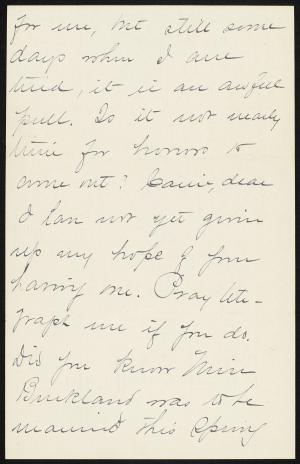 for me, but still some
days when I am
tired, it is an awful
pull. Is it not nearly
time for honors to
come out? Carrie, dear
I han not yet given
up my hope of your
having one. Pray tele-
graph me if you do.
Did you know Miss
Buckland was to be
married this Spring